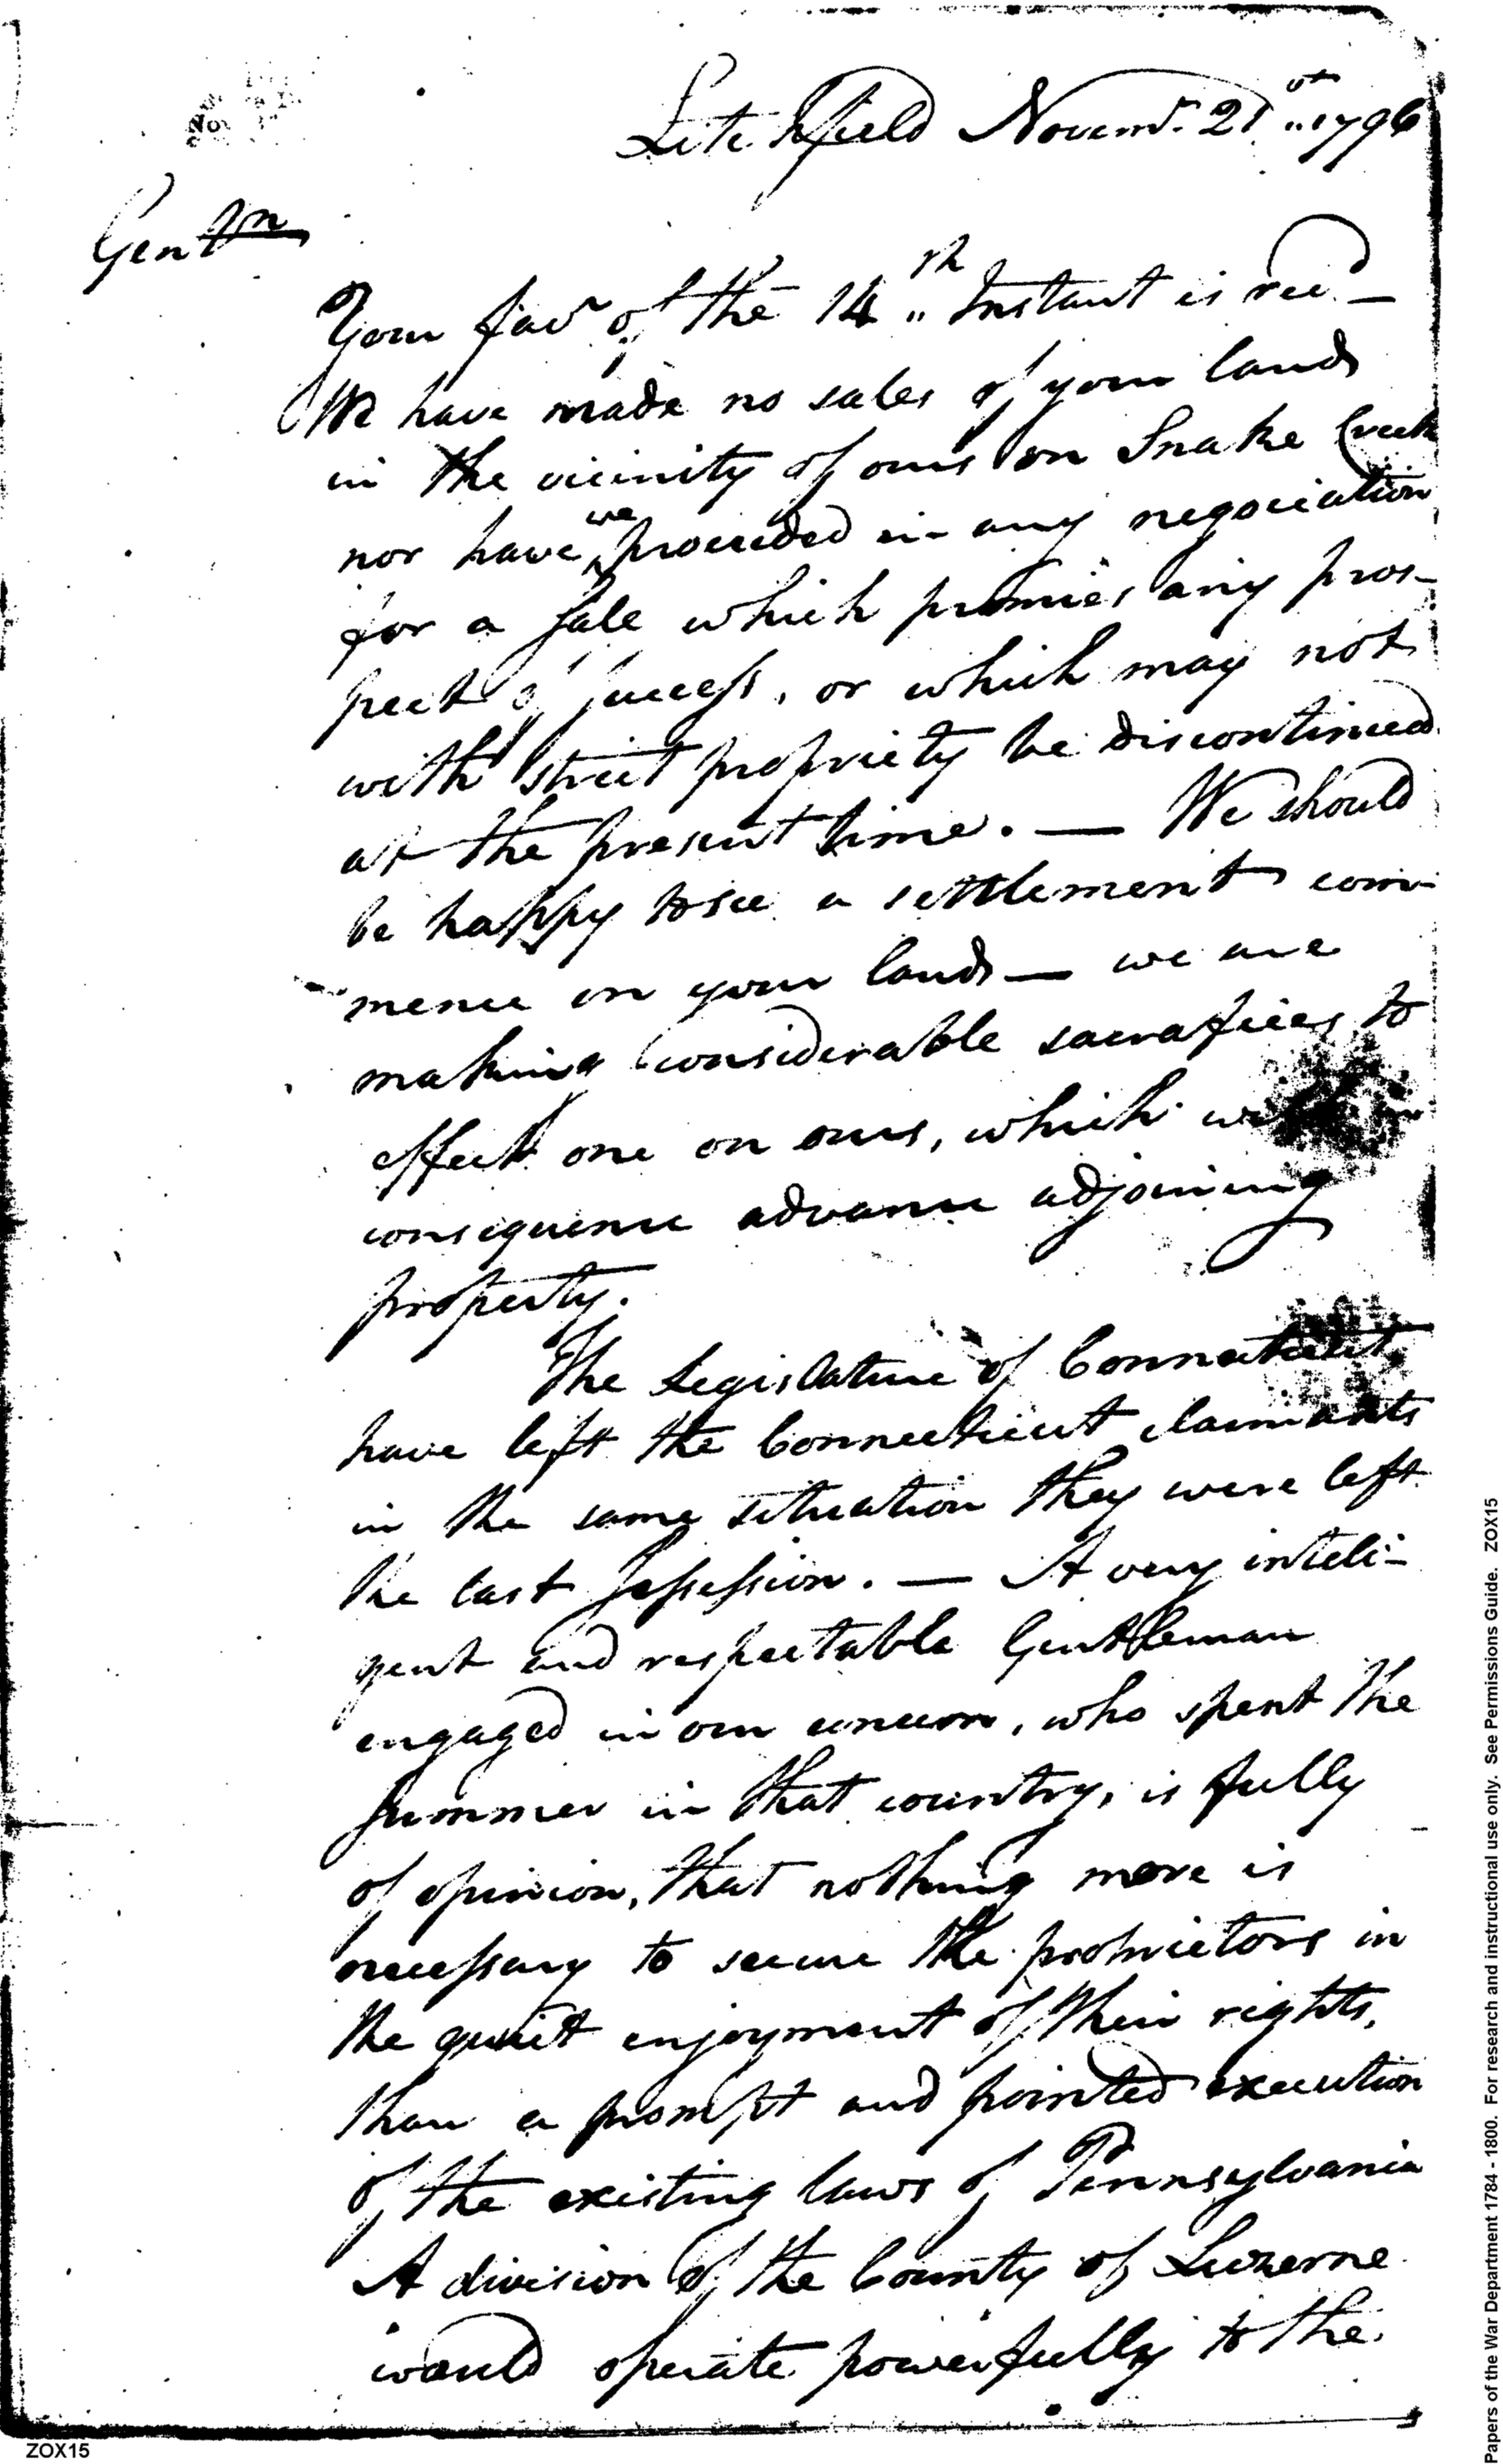 Litchfield Novemr. 21st 1796
Gentn
Your favr of the 14th Instant is recd —
We have made no sales of your lands
in the vicinity of ours on Snake Creek
nor have we proceeded in any negociation
for a Sale which promises any pros-
pect of success, or which may not
with strict propriety be discontinued
at the present time. — We should
be happy to see a settlement com-
mence on your lands — we are
making considerable sacrafices to
effect one on ours, which will
consequence advance adjoining
property.
The Legislature of Connecticut
have left the Connecticut claimants
in the same situation they were left
the last Sessession. — A very inteli-
gent and respectable Gentleman
engaged in our concern, who spent the
Summer in that country, is fully
of opinion, that nothing more is
necessary to secure the proprietors in
the quiet enjoyment of their rights,
than a prompt and pointed execution
of the existing laws of Pennsylvania
A division of the County of Luzerne
would operate powerfully to the
Papers of the War Department 1784 - 1800. For research and instructional use only. See Permissions Guide. ZOX15
ZOX15